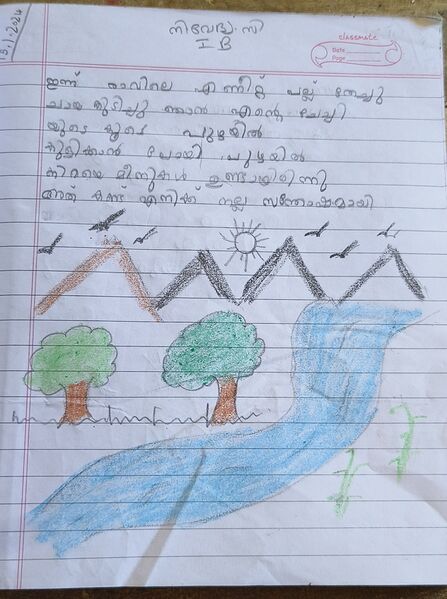 13.1.2024
നിവേദ്യ.സി
I B
classmate
Date
Page
ഇന്ന് രാവിലെ എണീറ്റ് പല്ല് തേച്ചു
ചായ കുടിച്ചു ഞാൻ എന്റെ ചേച്ചി
യുടെ കൂടെ പുഴയിൽ
കുളിക്കാൻ പോയി പുഴയിൽ
നിറയെ മീനുകൾ ഉണ്ടായിരുന്നു
അത് കണ്ട് എനിക്ക് നല്ല സന്തോഷമായി